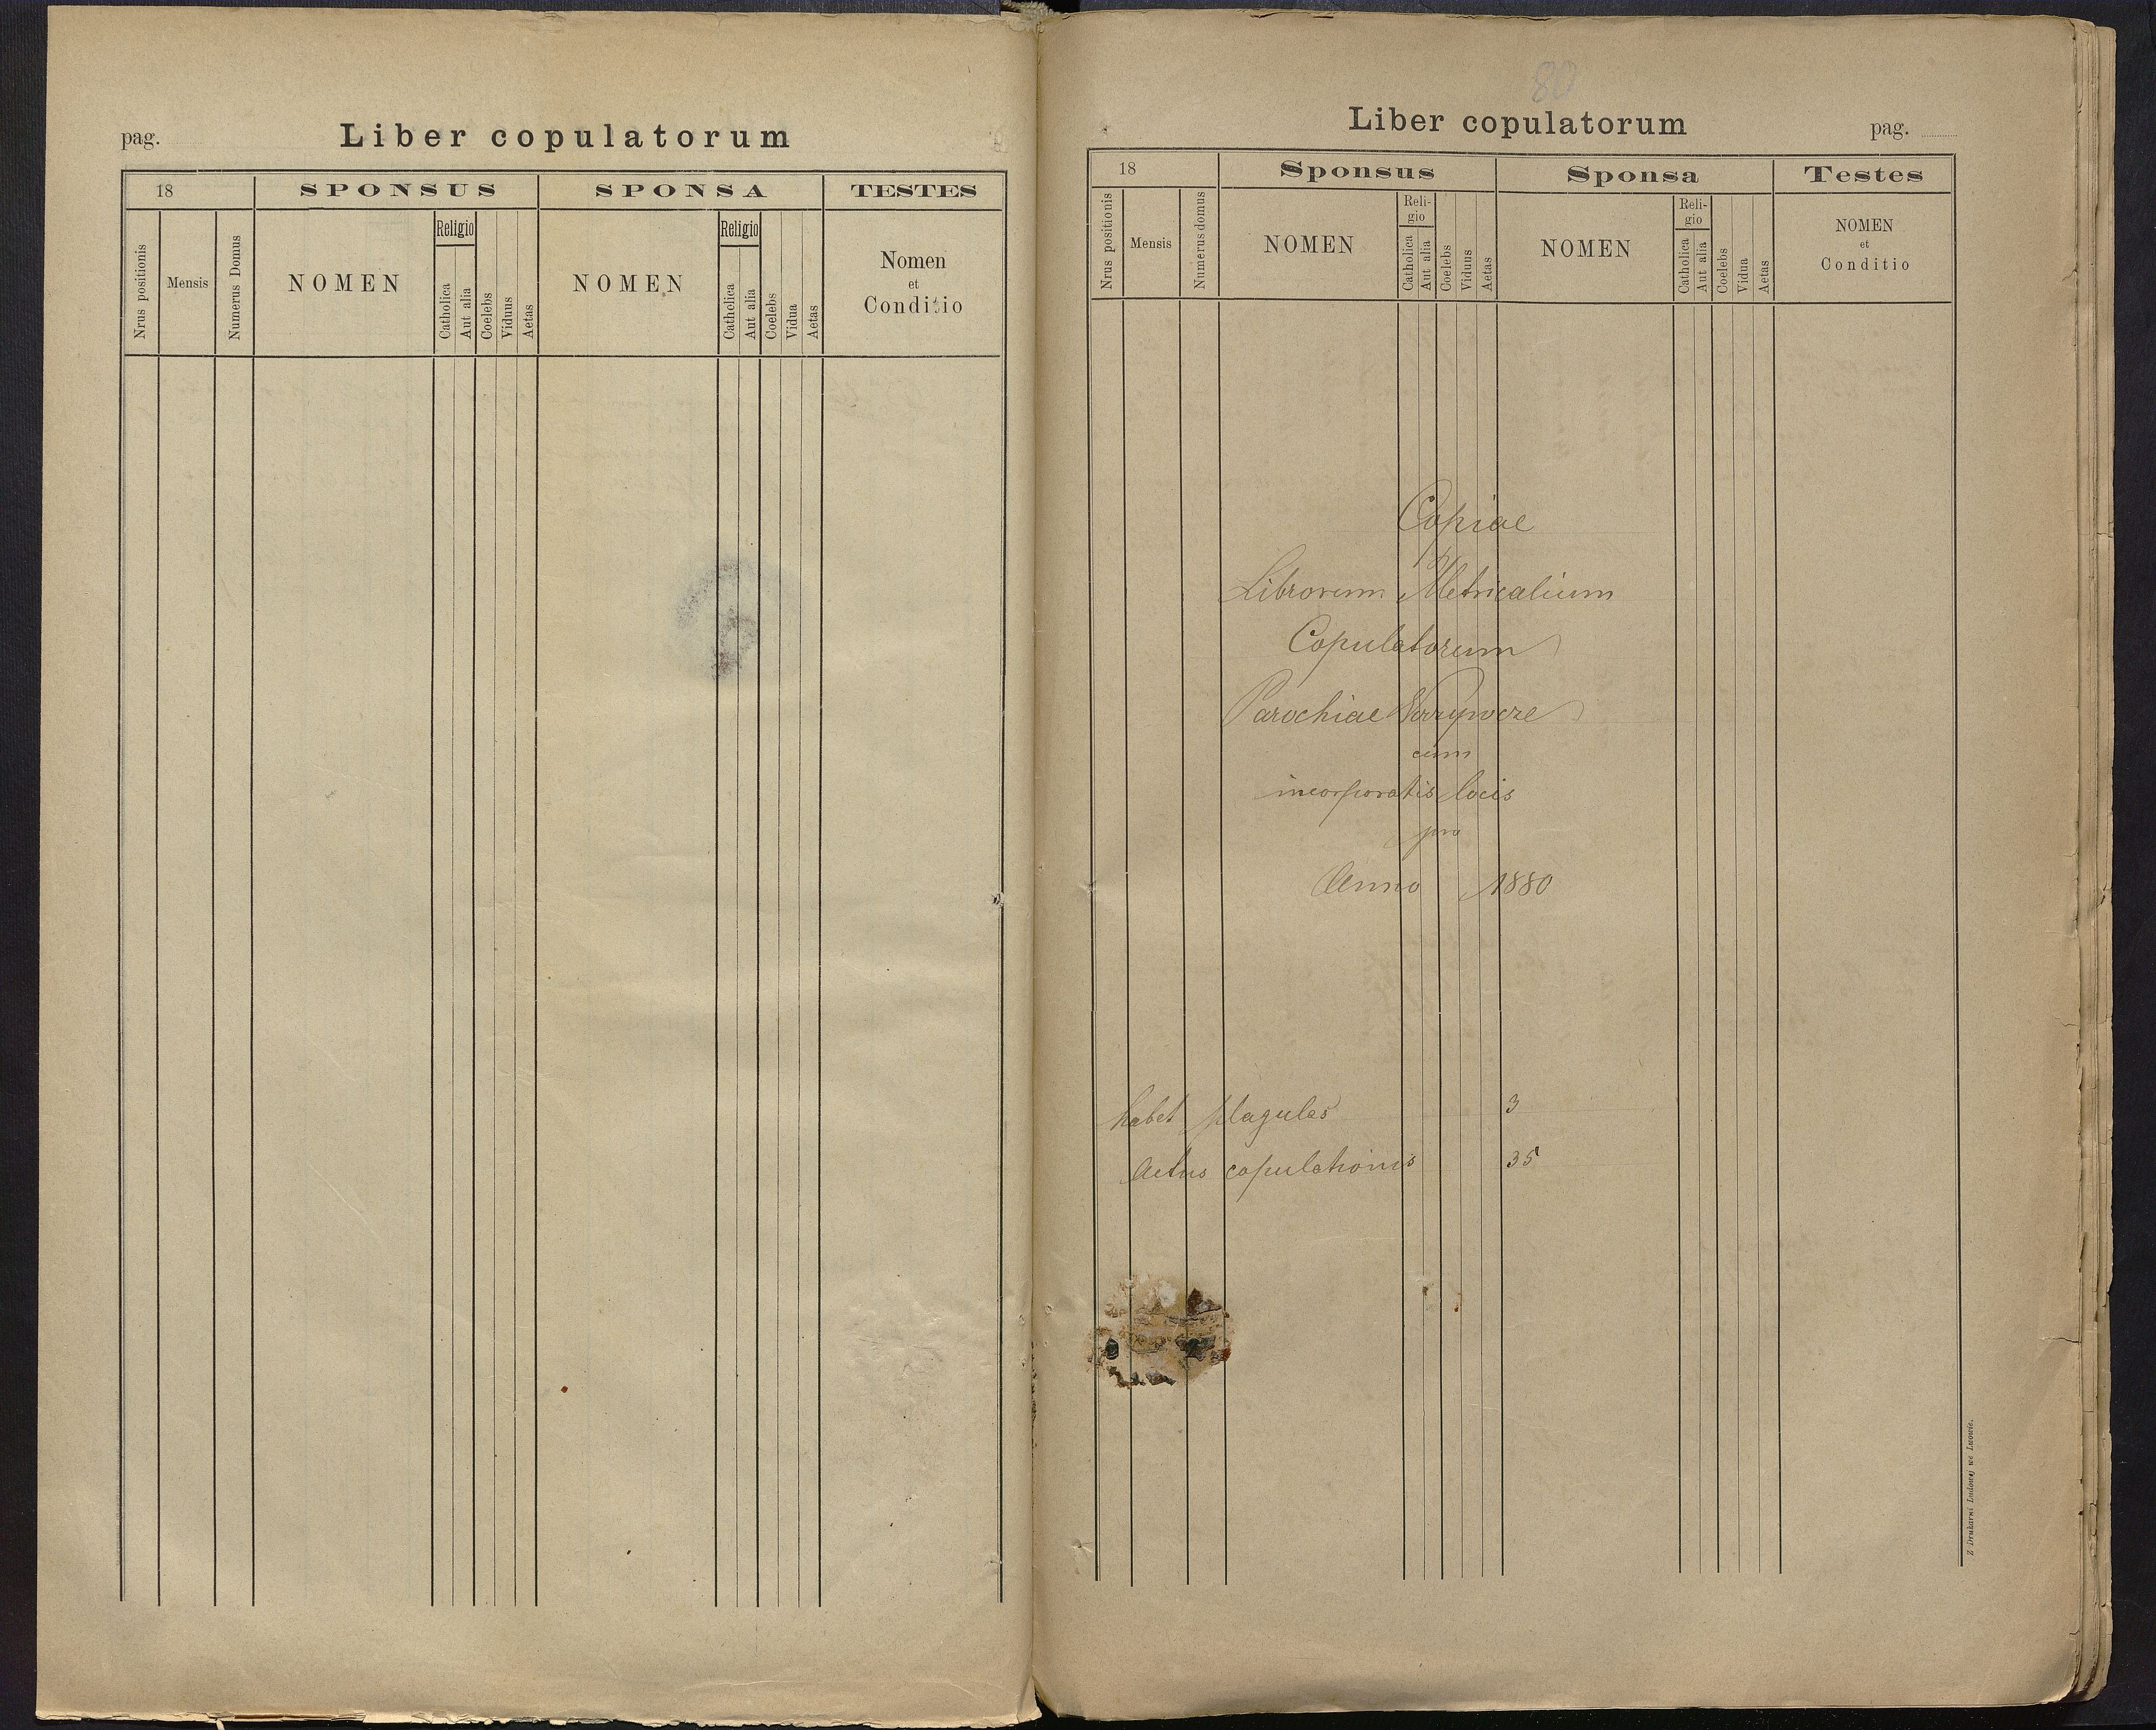 pag.
Liber copulatorum
18
SPONSUS
SPONSA
TESTES
Nrus positionis
Mensis
Numerus Domus
NOMEN
Religio
Catholica
Aut alia
Coelebs
Viduus
Aetas
NOMEN
Religio
Catholica
Aut alia
Coelebs
Vidua
Aetas
Nomen
et
Conditio
80
Liber copulatorum
pag.
18
Sponsus
Sponsa
Testes
Nrus positionis
Mensis
Numerus domus
NOMEN
Reli-
gio
Catholica
Aut alia
Coelebs
Viduus
Aetas
NOMEN
Reli-
gio
Catholica
Aut alia
Coelebs
Vidua
Aetas
NOMEN
et
Conditio
Copiae
Librorum Metricalium
Copulatorum
Parochiae
cum
incorporatis locis
pro
Anno 1880
habet plagulas 3
Actus copulationis 35
Z Drukarni Ludowej we Lwowie.